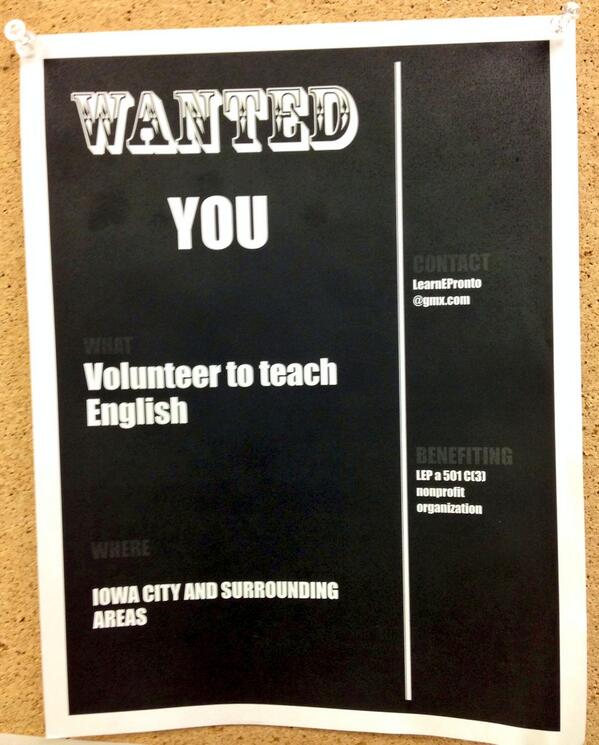 WANTED
YOU
WHAT
Volunteer to teach
English
WHERE
IOWA CITY AND SURROUNDING
AREAS
CONTACT
LearnEPronto
@gmx.com
BENEFITING
LEP a 501 C(3)
nonprofit
organization